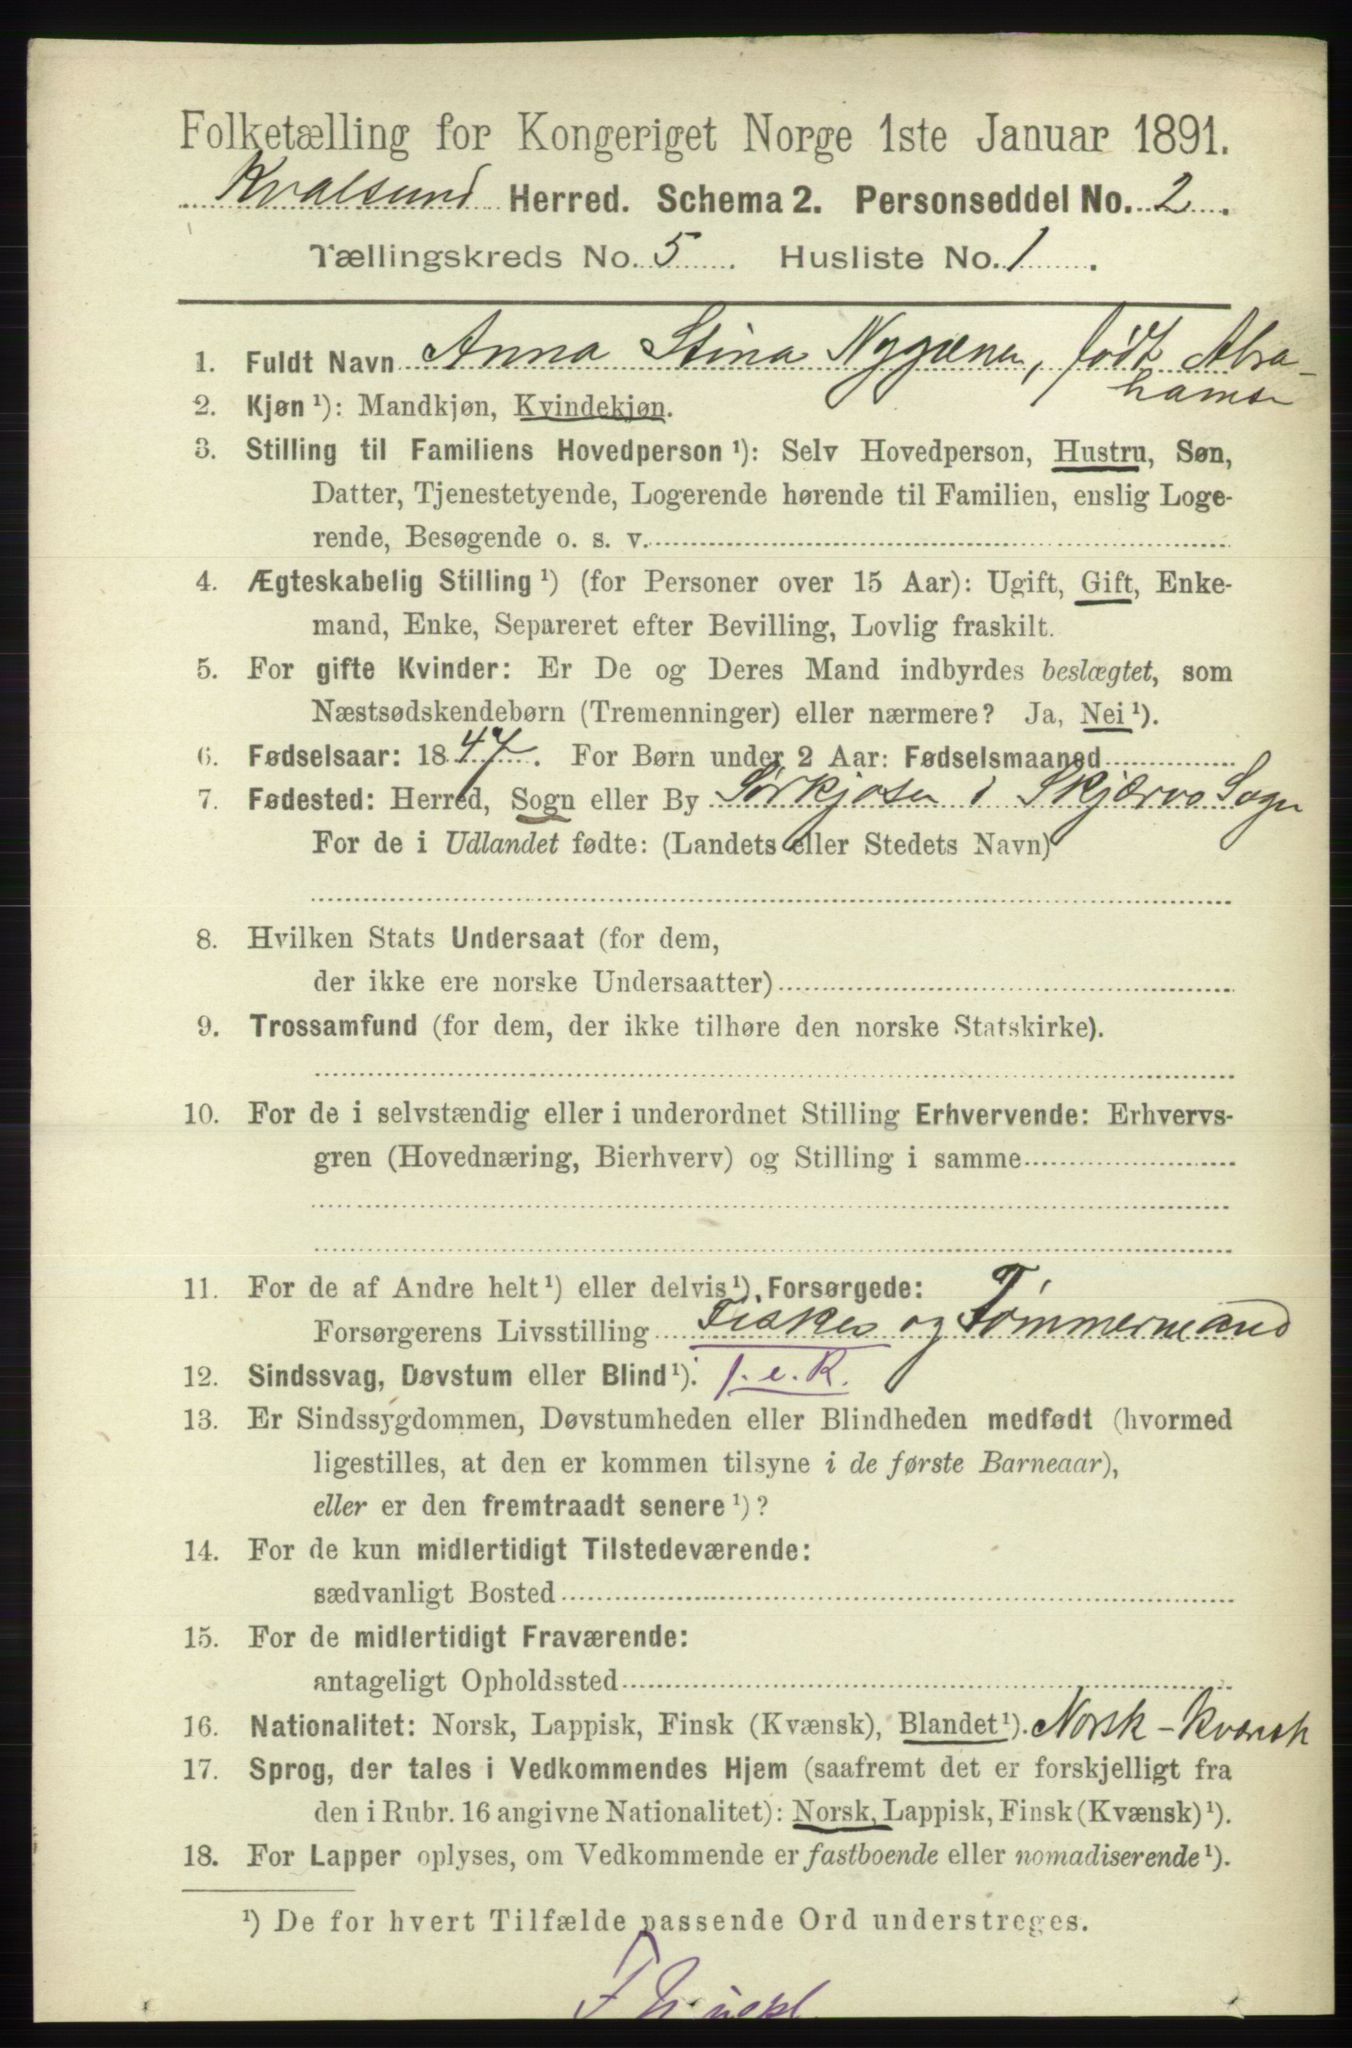 Folketælling for Kongeriget Norge 1ste Januar 1891.
Kvalsund Herred. Schema 2. Personseddel No. 2.
Tællingskreds No. 5. Husliste No. 1.
1. Fuldt Navn Anna Stina Nygæner, født Abra-
hamsen
2. Kjøn ¹): Mandkjøn, Kvindekjøn.
3. Stilling til Familiens Hovedperson ¹): Selv Hovedperson, Hustru, Søn,
Datter, Tjenestetyende, Logerende hørende til Familien, enslig Loge-
rende, Besøgende o. s. v.
4. Ægteskabelig Stilling ¹) (for Personer over 15 Aar): Ugift, Gift, Enke-
mand, Enke, Separeret efter Bevilling, Lovlig fraskilt.
5. For gifte Kvinder: Er De og Deres Mand indbyrdes beslægtet, som
Næstsødskendebørn (Tremenninger) eller nærmere? Ja, Nei ¹).
6. Fødselsaar: 1847. For Børn under 2 Aar: Fødselsmaaned
7. Fødested: Herred, Sogn eller By Sørkjosen i Skjærvø Sogn
For de i Udlandet fødte: (Landets eller Stedets Navn)
8. Hvilken Stats Undersaat (for dem,
der ikke ere norske Undersaatter)
9. Trossamfund (for dem, der ikke tilhøre den norske Statskirke).
10. For de i selvstændig eller i underordnet Stilling Erhvervende: Erhvervs-
gren (Hovednæring, Bierhverv) og Stilling i samme
11. For de af Andre helt ¹) eller delvis ¹) Forsørgede:
Forsørgerens Livsstilling Fisker og Tømmermand
12. Sindssvag, Døvstum eller Blind ¹). f. e. R.
13. Er Sindssygdommen, Døvstumheden eller Blindheden medfødt (hvormed
ligestilles, at den er kommen tilsyne i de første Barneaar),
eller er den fremtraadt senere ¹)?
14. For de kun midlertidigt Tilstedeværende:
sædvanligt Bosted
15. For de midlertidigt Fraværende:
antageligt Opholdssted
16. Nationalitet: Norsk, Lappisk, Finsk (Kvænsk), Blandet ¹). Norsk-Kvænsk
17. Sprog, der tales i Vedkommendes Hjem (saafremt det er forskjelligt fra
den i Rubr. 16 angivne Nationalitet): Norsk, Lappisk, Finsk (Kvænsk) ¹).
18. For Lapper oplyses, om Vedkommende er fastboende eller nomadiserende ¹).
¹) De for hvert Tilfælde passende Ord understreges.